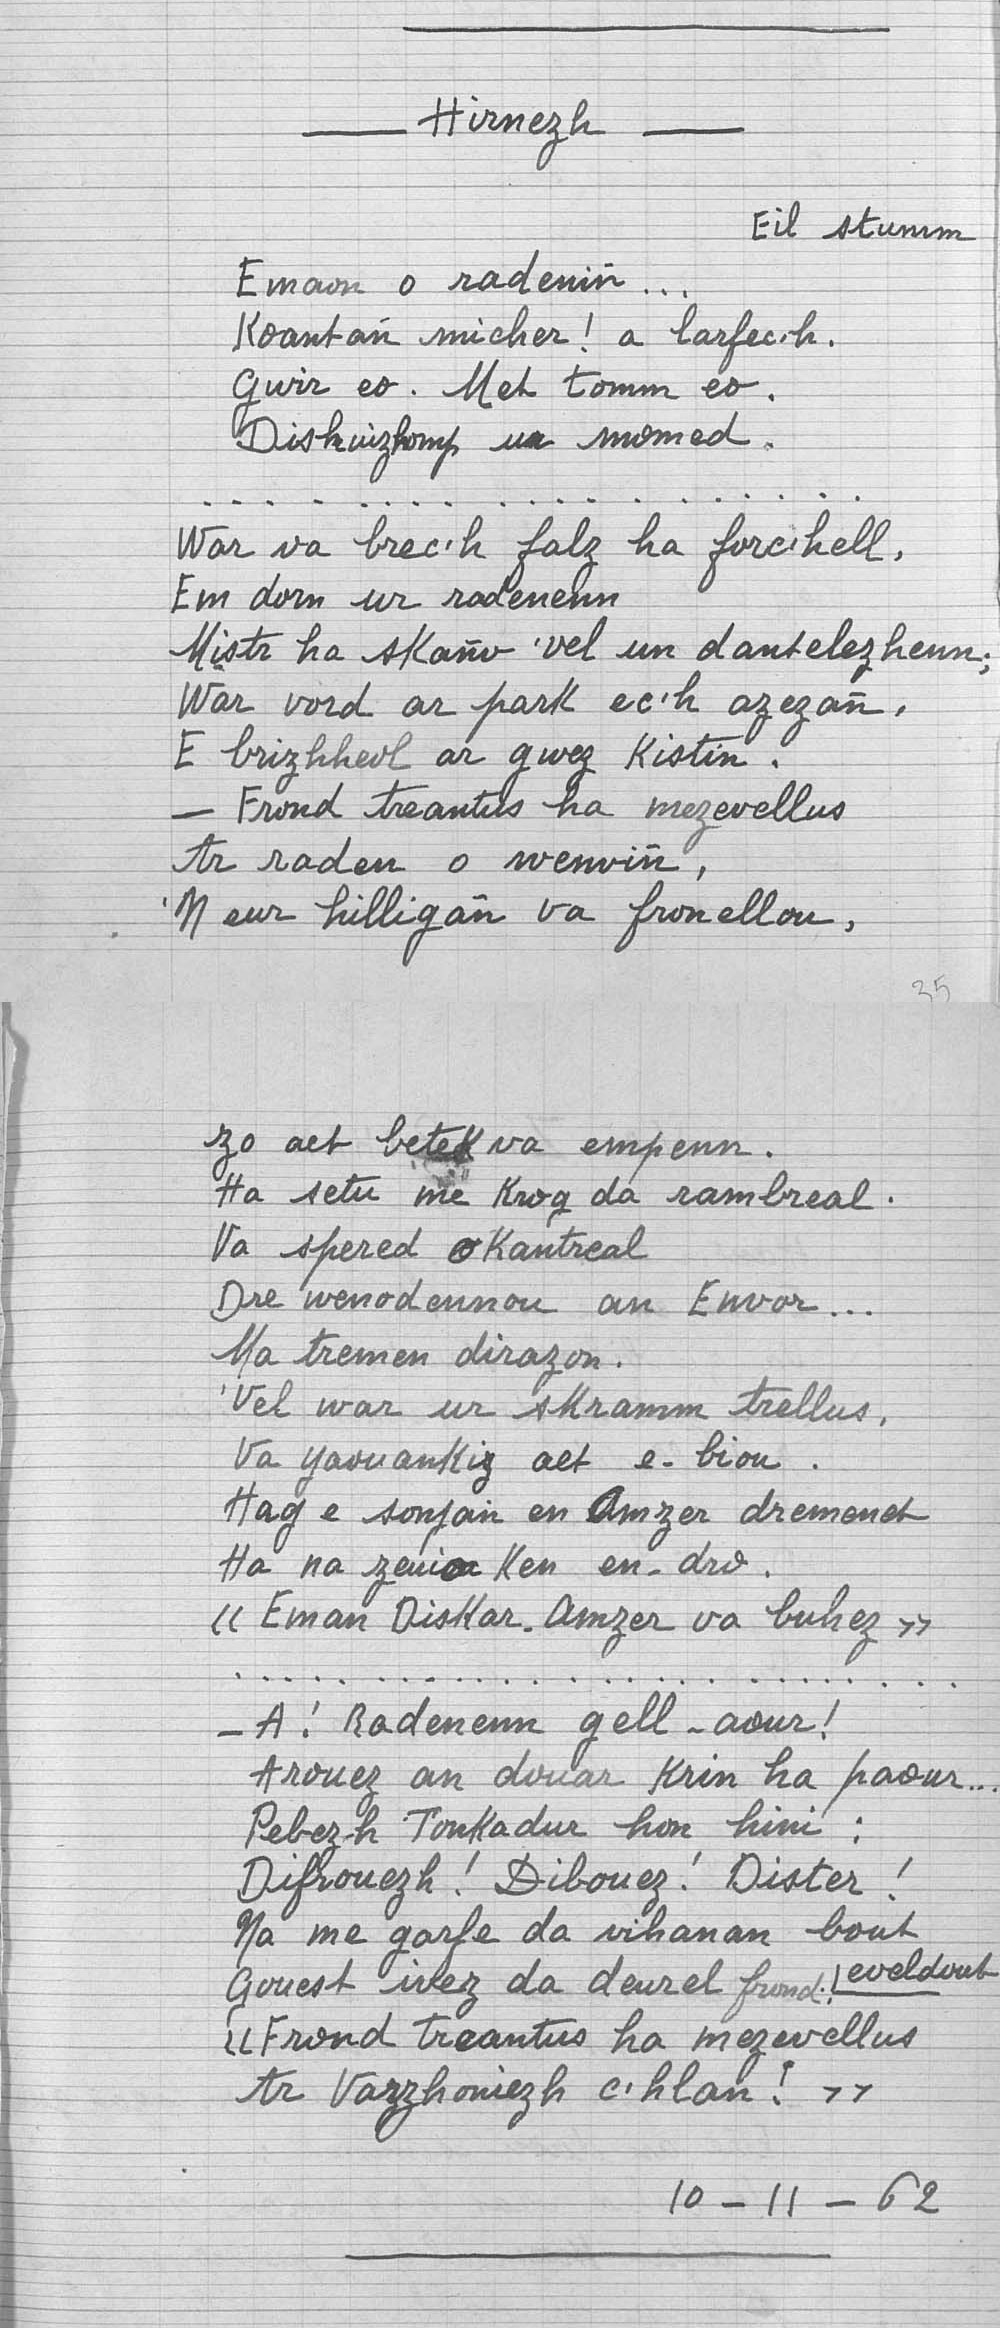 Hirnezh
Eil stumm
Emaon o radeniñ...
Koantañ micher! a larfec'h.
Gwir eo. Met tomm eo.
Diskuizhomp ur momed.
. . . . . . . . . . . . . . . . .
War va brec'h falz ha forc'hell,
Em dorn ur radenenn
Mistr ha skañv 'vel un dantelezhenn;
War vord ar park ec'h azezañ,
E brizhheol ar gwez Kistin.
— Frond treantus ha mezevellus
Ar raden o wenviñ,
'N eur hilligañ va fronellou,
35
zo aet betek va empenn.
Ha setu me krog da rambreal.
Va spered o Kantreal
Dre wenodennou an Envor...
Ma tremen dirazon.
'Vel war ur skramm trellus,
Va yaouankiz aet e-biou.
Hag e sonjan en Amzer dremenet
Ha na zeuio Ken en-dro.
« Eman Diskar-Amzer va buhez »
. . . . . . . . . . . . . . . . .
— A! Radenenn gell-aour!
Arouez an douar krin ha paour...
Pebezh Tonkadur hon hini:
Difrouezh! Dibouez! Dister!
Na me garfe da vihanan bout
Gouest ivez da deurel frond! eveldout
« Frond treantus ha mezevellus
Ar Varzhoniezh c'hlan! »
10 - 11 - 62